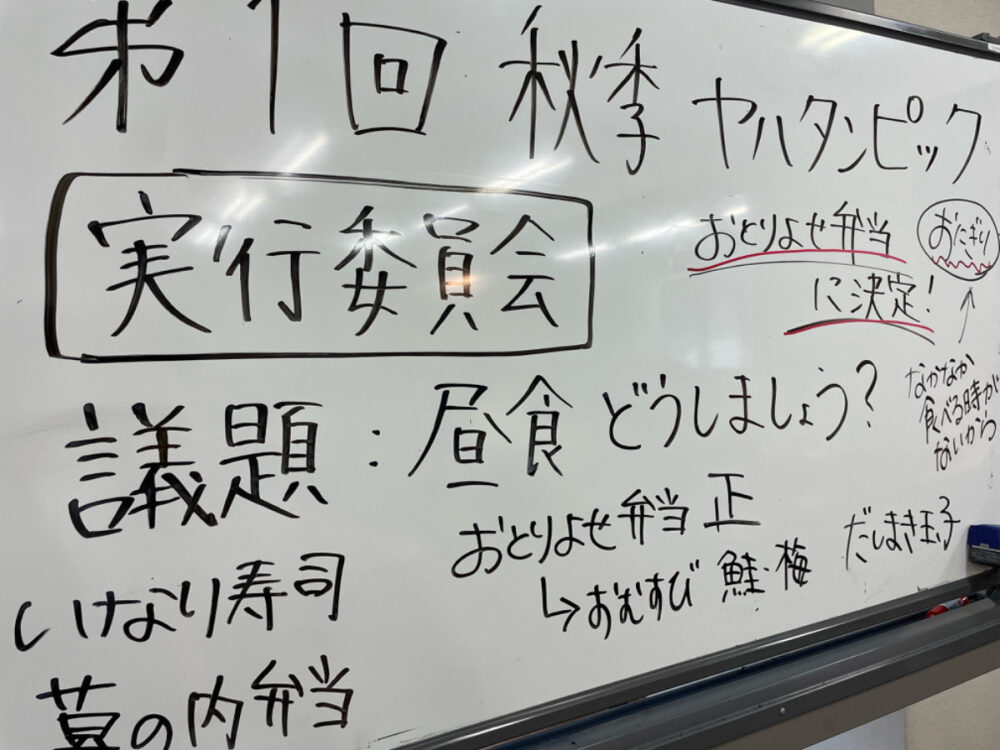 第1回 秋季 ヤハタンピック
実行委員会
おとりよせ弁当
に決定!
おにぎり
なかなか
食べる時が
ないから
議題:昼食どうしましょう?
おとりよせ弁当 正
↳おむすび 鮭・梅 だしまき玉子
いなり寿司
幕の内弁当